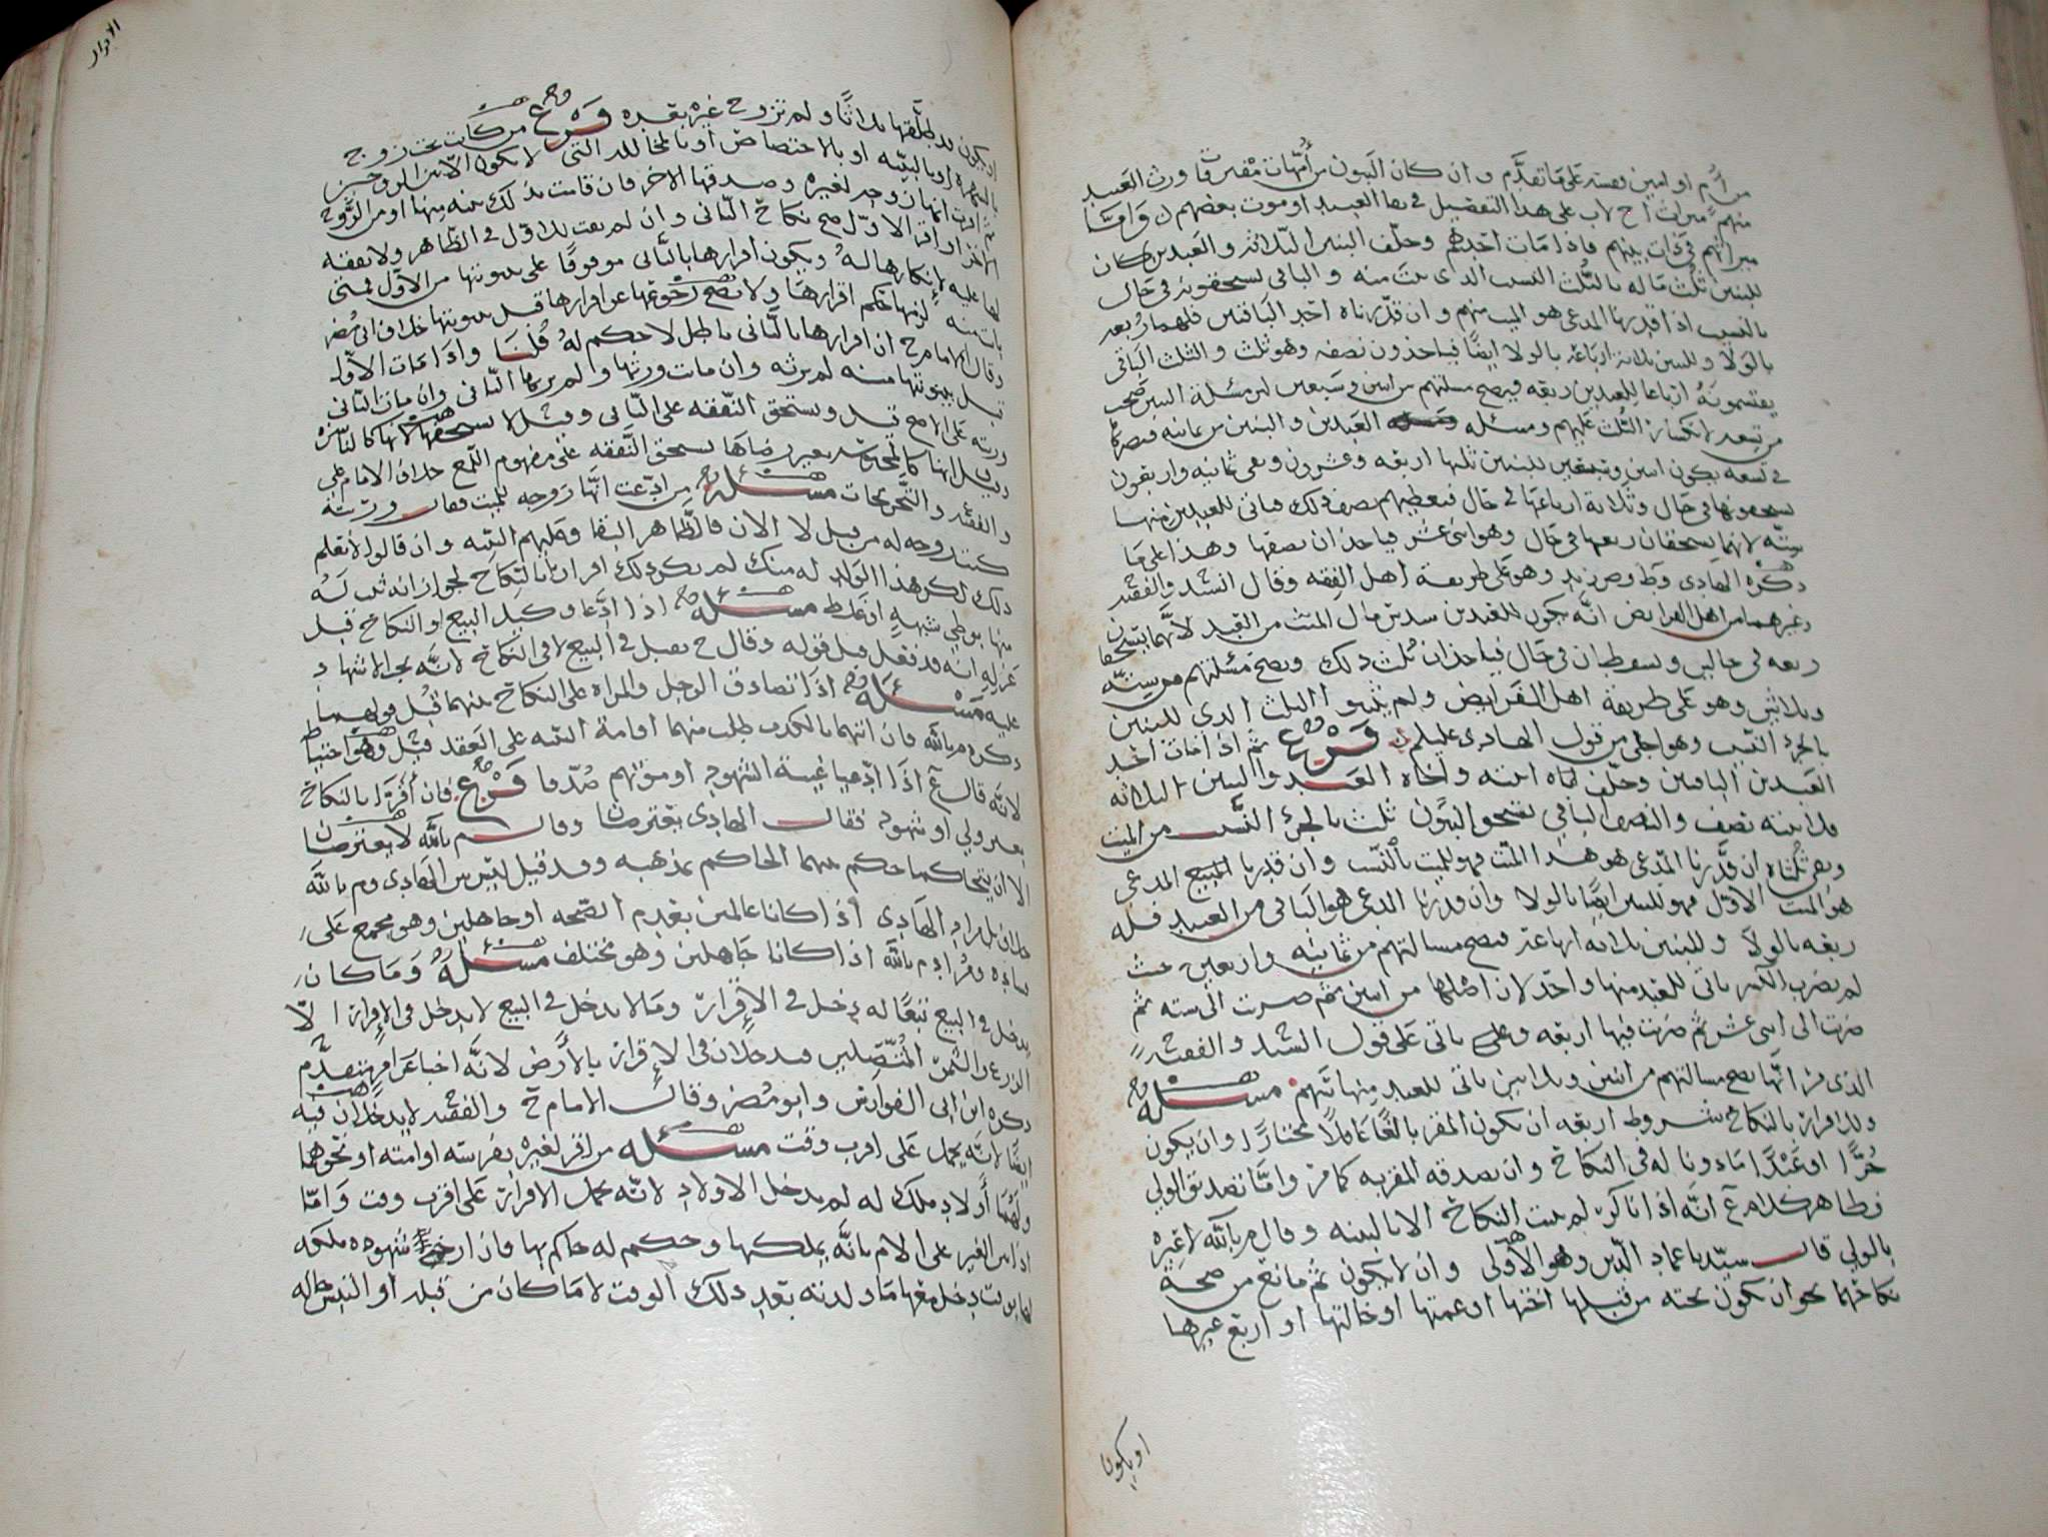 من أم او اثنين وقسه على ما تقدم وان كان البنون من أمهات مفترقات ورث العبيد
منهم ميراث اخ لاب على هذا التفصيل في بقا العبيد او موت بعضهم وأما
ميراثهم في ذات بينهم فاذا مات احدهم وخلف البنين الثلاثة والعبدين كان
للبنين ثلث ماله بالثلث النسب الذي ثبت منه والباقي يستحقونه في حال
بالنسب اذا قدرنا المدعى هو الميت منهم وان قدرناه احد الباقين فلهما ربعه
بالولا وللبنين ثلاثة ارباعه بالولا ايضا فياخذون نصفه وهو ثلث والثلث الباقي
يقتسمونه ارباعا للعبدين ربعه فيصح مسئلتهم من اثنين وسبعين لان مسئلة البنين تصح
من تسعه لانكسار الثلث عليهم ومسئله العبدين والبنين من ثمانيه فنضربها
في تسعه يكون اثنين وسبعين للبنين ثلثها اربعه وعشرون وبقي ثمانيه واربعون
يستحقونها في حال وثلاثة ارباعها في حال فنعطيهم نصف ذلك وياتي للعبدين منها
سته لانهما يستحقان ربعها في حال وهو اثني عشر فياخذان نصفها وهذا على ما
ذكره الهادي وط وص وزيد وهو على طريقة اهل الفقه وقال السيد والفقيه
وغيرهما من اهل الفرايض انه يكون للعبدين سدس مال الميت من العبد لانهما يستحقان
ربعه في حالين ويسقطان في حال فياخذان ثلث ذلك وتصح مسئلتهم من سته
وثلاثين وهو على طريقة اهل الفرايض ولم يثبتوا الثلث الذي للبنين
بالجزء النسب وهو اجلى من قول الهادي عليلم فرع ثم اذا مات احد
العبدين الباقيين وخلف ابنته واخاه العبد والبنين الثلاثه
فلابنته نصف والنصف الباقي يستحق البنون ثلث بالجزء النسب من الميت
وبقي ثلثاه ان قدرنا المدعى هو هذا الميت فهو للبنين بالنسب وان قدرنا المدعى
هو الميت الاول فهو للبنين ايضا بالولا وان قدرنا المدعى هو الباقي من العبيد فله
ربعه بالولا وللبنين ثلاثة ارباعه فتصح مسالتهم من ثمانيه واربعين حيث
لم تضرب الكسر ياتي للعبد منها واحد لان اصلها من اثنين ثم ضربت الى سته ثم
ضربت الى اثني عشر ثم ضربت فيها اربعه وعلى ياتي على قول السيد والفقيه
الذي مر انها تصح مسالتهم من اثنين وثلاثين ياتي للعبد منها سهم مسئله
وللاقرار بالنكاح شروط اربعه ان يكون المقر بالغا عاقلا مختارا وان يكون
حرا او عبدا ماذونا له في النكاح وان يصدقه المقر به كما مر واما تصديق الولي
فظاهر كلام ع انه اذا انكر لم يثبت النكاح الا بالبينه وقال م بالله لا عبره
بالولي قال سيدنا عماد الدين وهو الاولى وان لا يكون ثم مانع من صحة
نكاحهما نحو ان تكون تحته من قبلها اختها او عمتها او خالتها او اربع غيرها
او يكون
الاقرار
او يكون قد طلقها ثلاثا ولم تزوج غيره بعده فرع من كانت تحت زوج
بالشهره او بالبينه او بالاختصاص او بالمخاللة التي لا تكون الا بين الزوجين
ثم اقرت انها زوجه لغيره وصدقها الاخر فان قامت بذلك بينه منها او من الزوج
الاخر او اقر الاول صح نكاح الثاني وان لم يقت للاول في الظاهر ولا نفقه
لها عليه لانكارها له ويكون اقرارها بالثاني موقوفا على بينونتها من الاول فمتى
بانت منه لزمها حكم اقرارها ولا يصح رجوعها عن اقرارها قبل بينونتها خلاف ابي مضر
وقال الامام ح ان اقرارها بالثاني باطل لا حكم له قلنا واذا مات الاول
قبل بينونتها منه لم ترثه وان مات ورثها ولم يرثها الثاني وان مات الثاني
ورثته على الاصح قيل وتستحق النفقه على الثاني وقيل لا تستحقها لانها كالناشزه
وقيل انها كالمحبوسه بغير رضاها تستحق النفقه على مفهوم اللمع خلاف الامام على
والفقيه والتخريجات مسئله من ادعت انها زوجه للميت فقال ورثته
كنت زوجه له من قبل لا الان فالظاهر البقا وعليهم البينه وان قالوا لا نعلم
ذلك لكن هذا الولد له منك لم يكن ذلك اقرارا بالنكاح لجواز انه ثبت نسبه
منها بوطي شبهه او غلط مسئله اذا ادعا وكيل البيع او النكاح قبل
عزله انه قد فعل قبل قوله وقال ح يقبل في البيع لا في النكاح لانه يجب الاشهاد
عليه مسئله اذا تصادق الرجل والمراه على النكاح بينهما قبل قولهما
ذكره م بالله فان اتهما بالكذب طلب منهما اقامة البينه على العقد قيل وهو احتياط
لانه قال ع اذا ادعيا غيبة الشهود او موتهم صدقا فرع فان اقرا بالنكاح
بغير ولي او شهود فقال الهادي يعترضان وقال م بالله لا يعترضان
الا ان يتحاكما حكم بينهما الحاكم بمذهبه وقد قيل ليس بين الهادي وم بالله
خلاف بل مراد الهادي اذا كانا عالمين بعدم الصحه او جاهلين وهو مجمع على
فساده ومراد م بالله اذا كانا جاهلين وهو مختلف مسئله وما كان
يدخل في البيع تبعا له دخل في الاقرار وما لا يدخل في البيع لا يدخل في الاقرار الا
الزرع والثمر المتصلين فيدخلان في الاقرار بالارض لانه اخبار عن امر متقدم
ذكره ابن ابي الفوارس وابو مضر وقال الامام ح والفقيه لا يدخلان فيه
ايضا لانه يحمل على اقرب وقت مسئله من اقر لغيره بفرسه او امته او نحوهما
ولهما أولاد ملك له لم يدخل الاولاد لانه يحمل الاقرار على اقرب وقت واما
اذا بين الغير على الام بانه يملكها وحكم له حاكم بها فان ارخ شهوده ملكه
لها بوقت دخل معها ما ولدته بعد ذلك الوقت لا ما كان من قبله او التبس حاله